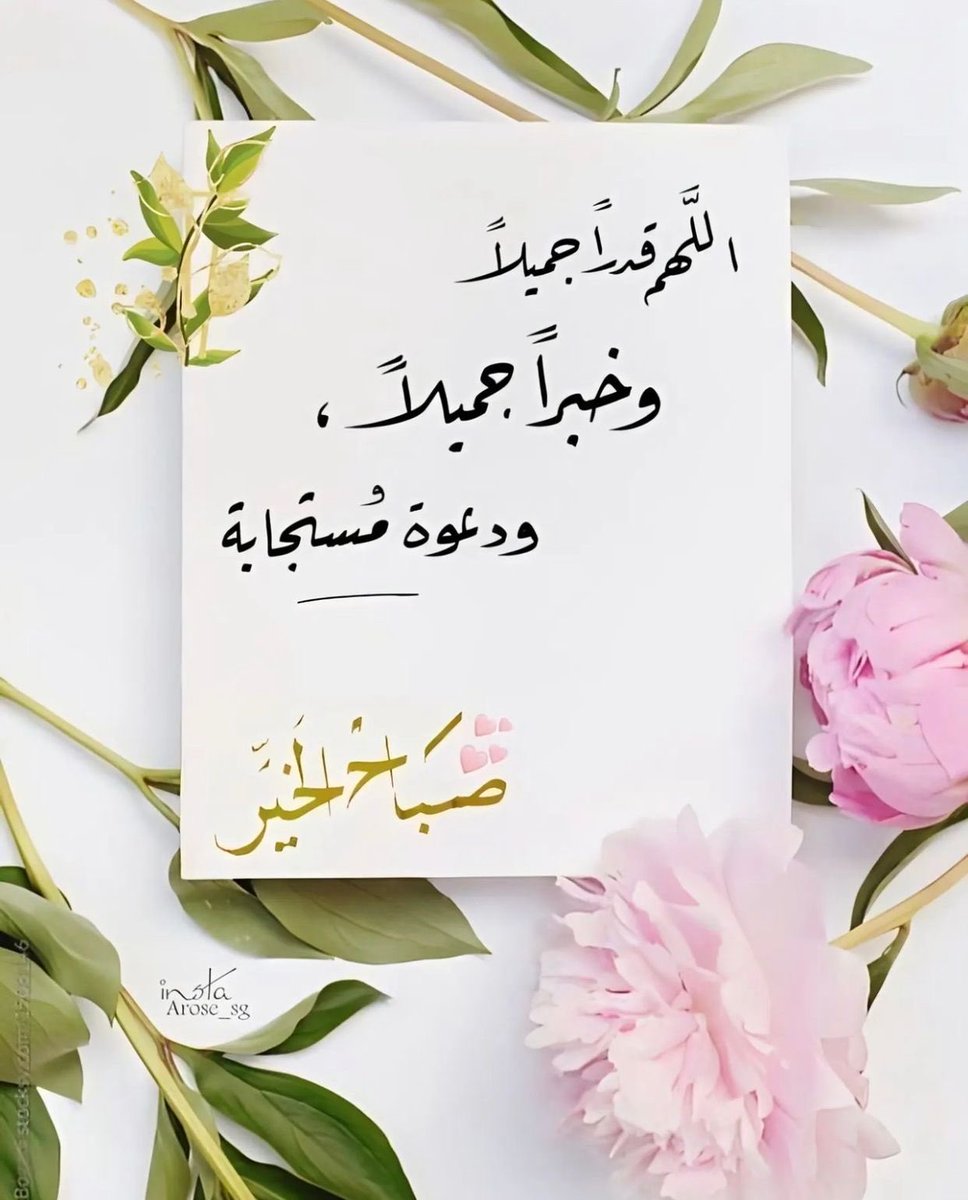 اللَّهم قدراً جميلاً
وخبراً جميلاً ،
ودعوة مُستجابة
صباح الخير
insta
Arose_sg